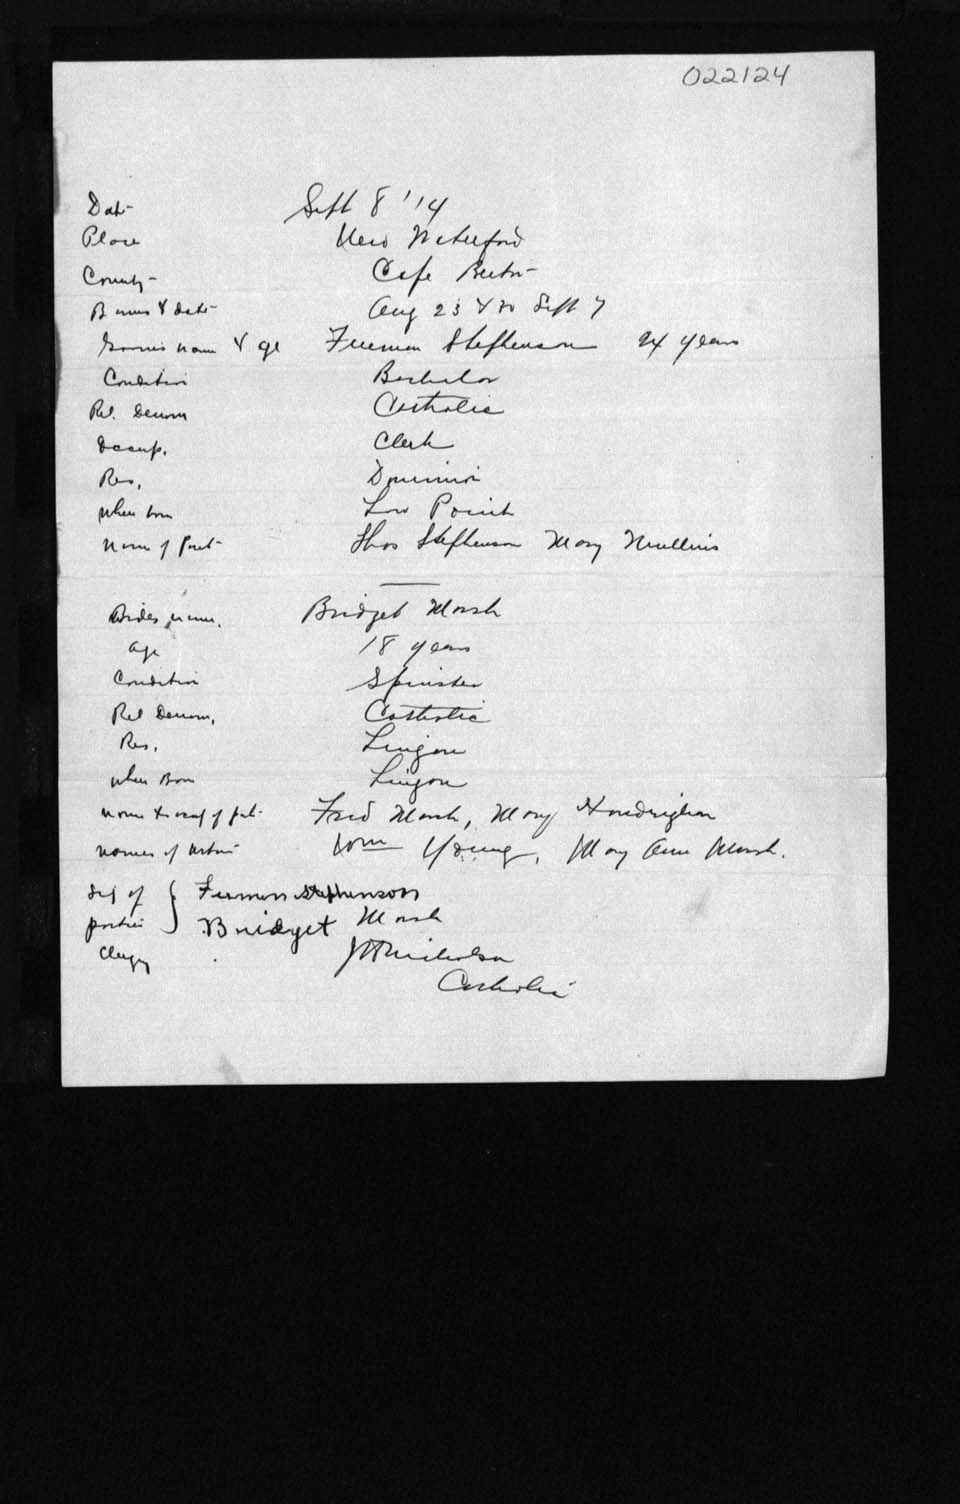 022124
Date Sept 8 '14
Place New Waterford
County Cape Breton
Banns & date Aug 23 & 30 Sept 7
Grooms name & age Freeman Stephenson 24 years
Condition Bachelor
Rel. Denom Catholic
Occup. Clerk
Res. Dominion
Where born Low Point
Name of Part Thos Stephenson Mary Mullins
Brides name. Bridget Marsh
Age 18 years
Condition Spinster
Rel Denom. Catholic
Res. Lingan
Where Born Lingan
Fred Marsh, Mary
Names of Witn Wm Young, Mary Ann Marsh.
Sig of } Freeman Stephenson
parties Bridget Marsh
Clergy Nicholson
Catholic